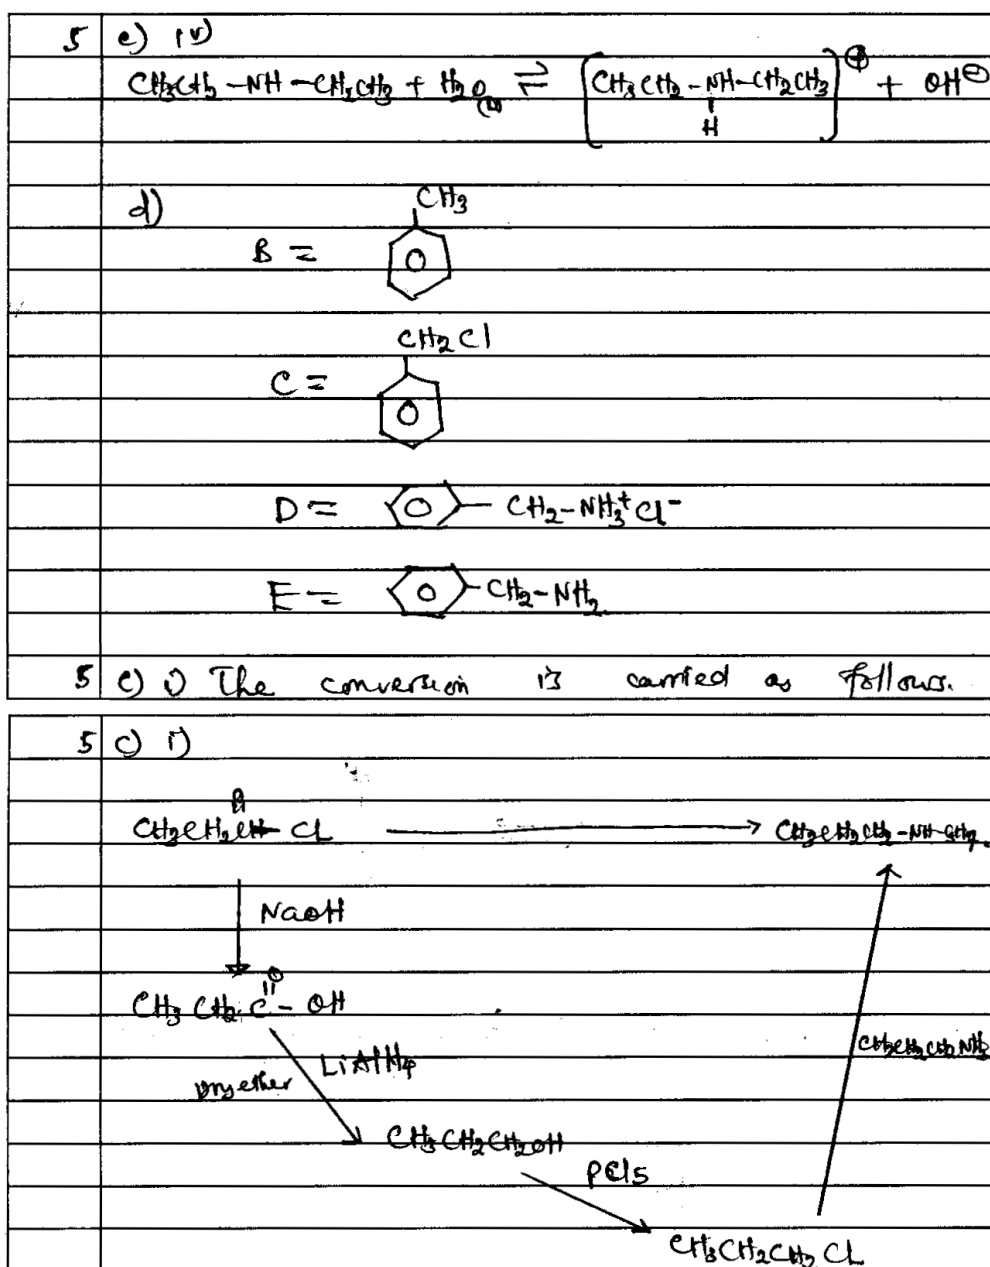 5 e) iv)
CH3CH2 - NH - CH2CH3 + H2O(l) ⇌ [CH3CH2 - NH - CH2CH3]⊕ + OH⊖
H
d)
CH3
B =
CH2Cl
C =
D = CH2-NH3+Cl-
E = CH2-NH2
5 e) i) The conversion is carried as follows.
5 c) i)
CH3CH2CH - CL → CH3CH2CH2-NH-
NaOH
O
CH3 CH2 C - OH
LiAlH4
Dry ether
CH3CH2CH2NH2
CH3CH2CH2OH
PCl5
CH3CH2CH2 CL